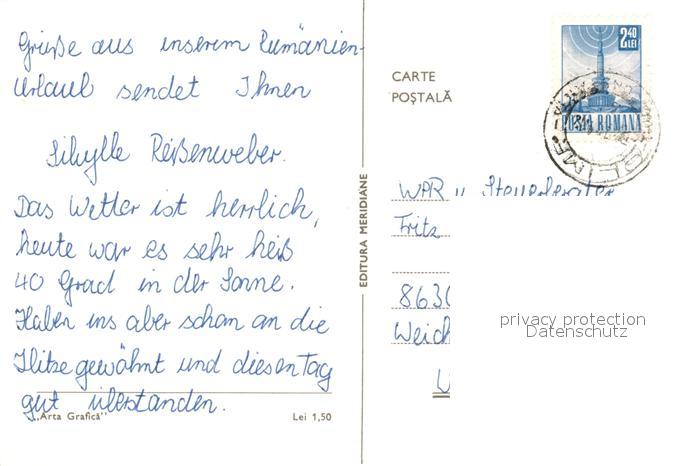 Grüße aus unserem Rumänien-
urlaub sendet Ihnen
Sibylle Reißenweber.
Das Wetter ist herrlich,
heute war es sehr heiß
40 Grad in der Sonne.
Haben uns aber schon an die
Hitze gewöhnt und diesen Tag
gut überstanden.
„Arta Grafică"
Lei 1,50
EDITURA MERIDIANE
CARTE
POȘTALĂ
2,40
LEI
POSTA ROMANA
WPR u Steuerberater
Fritz
8630
Weich
privacy protection
Datenschutz